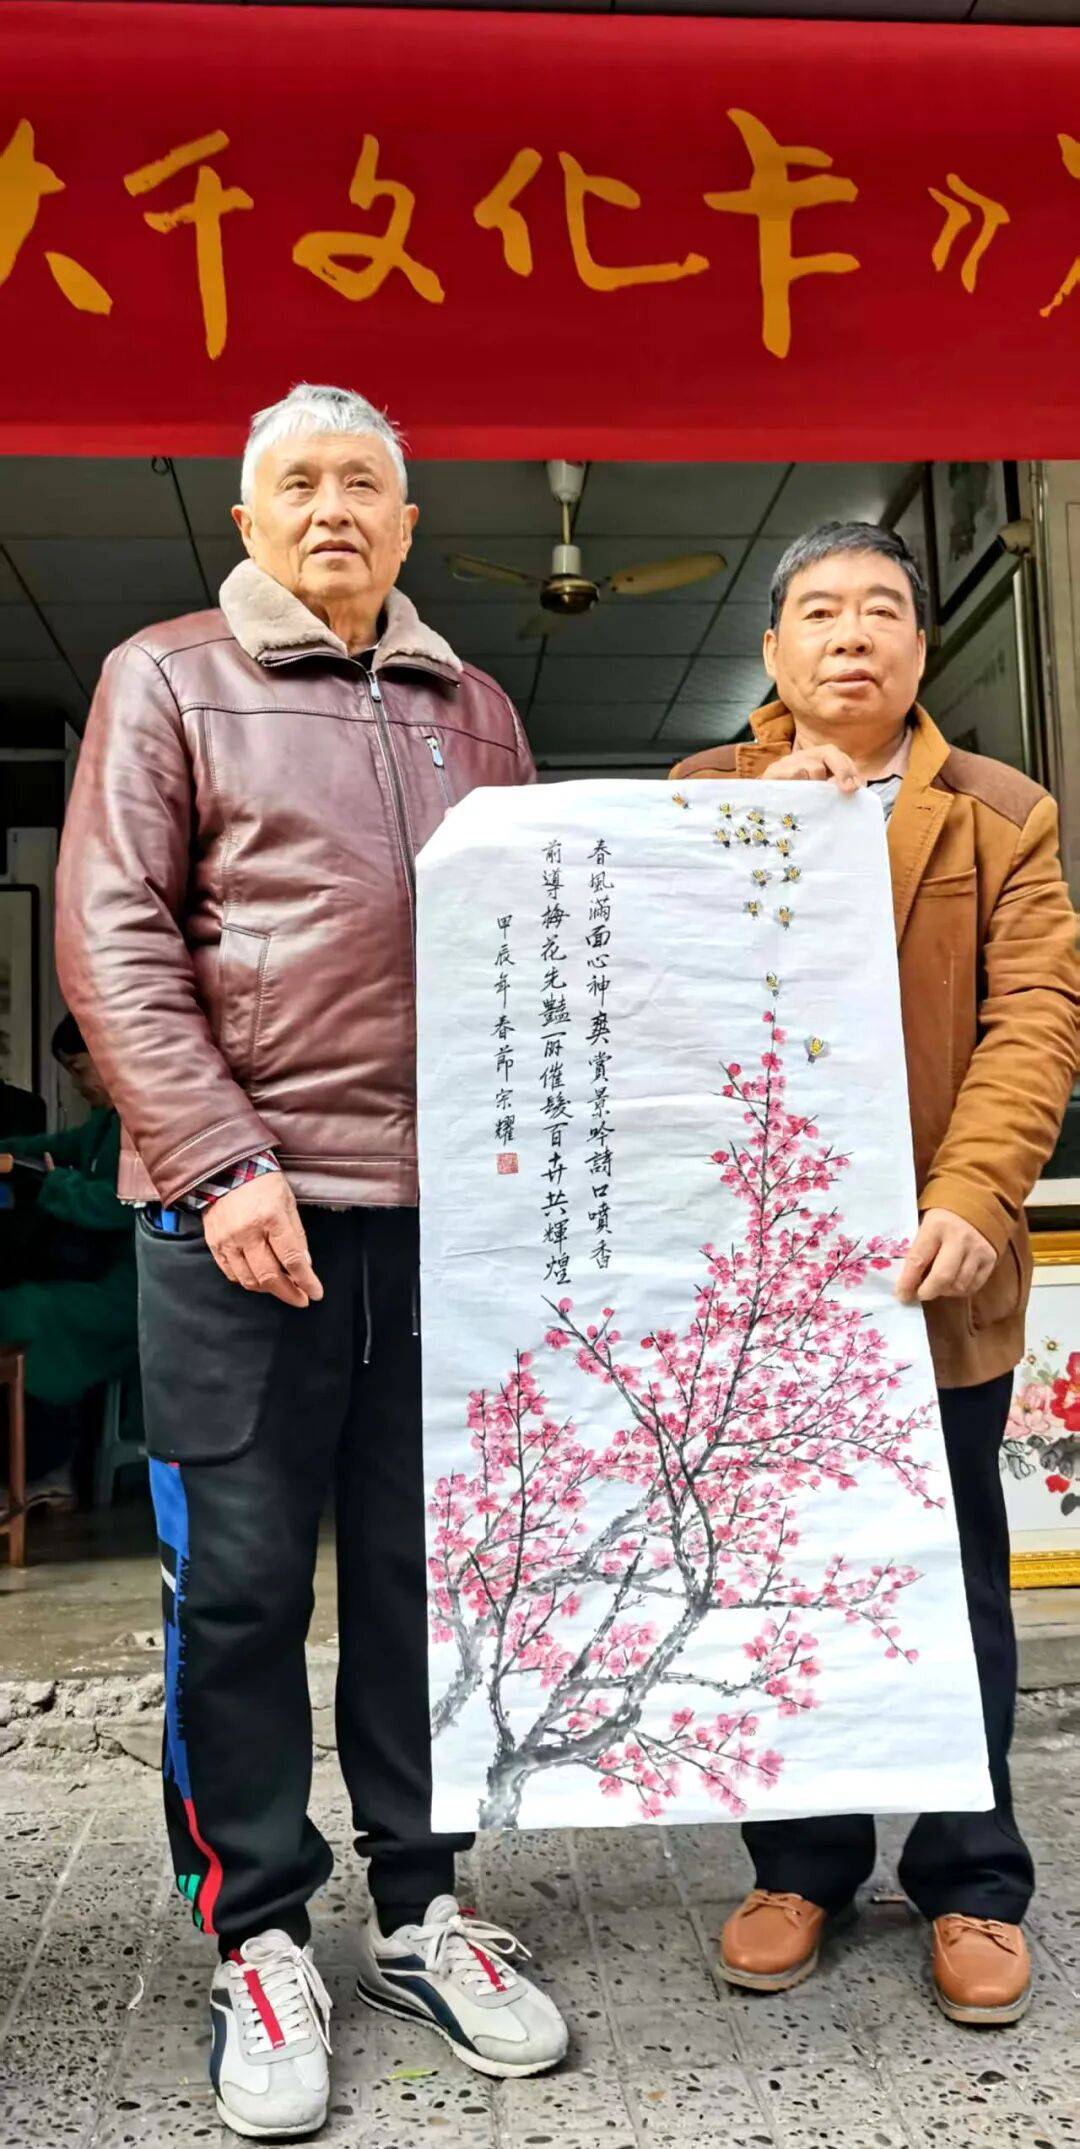 大千文化卡》
春風滿面心神爽賞景吟詩口噴香
前導梅花先豔丽催发百卉共輝煌
甲辰年春节宗耀